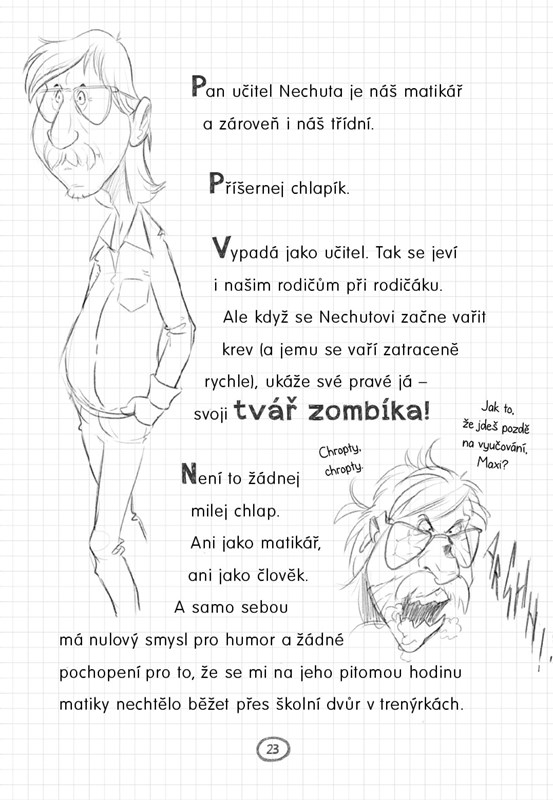 Pan učitel Nechuta je náš matikář
a zároveň i náš třídní.
Příšernej chlapík.
Vypadá jako učitel. Tak se jeví
i našim rodičům při rodičáku.
Ale když se Nechutovi začne vařit
krev (a jemu se vaří zatraceně
rychle), ukáže své pravé já –
svoji tvář zombíka!
Jak to,
že jdeš pozdě
na vyučování,
Maxi?
Chropty,
chropty.
Není to žádnej
milej chlap.
Ani jako matikář,
ani jako člověk.
A samo sebou
má nulový smysl pro humor a žádné
pochopení pro to, že se mi na jeho pitomou hodinu
matiky nechtělo běžet přes školní dvůr v trenýrkách.
23